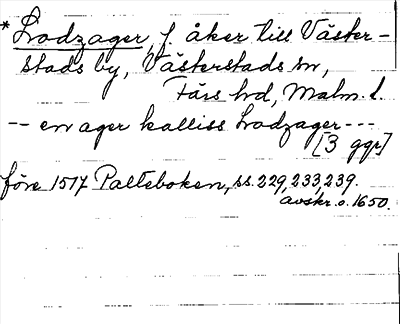 *Lodzager, f. åker till Väster-
stads by, Västerstads sn,
Färs hd, Malm. l.
-- en ager kalliss Lodzager ---
[3 ggr]
före 1517 Palteboken, ss. 229, 233, 239.
avskr. o. 1650.